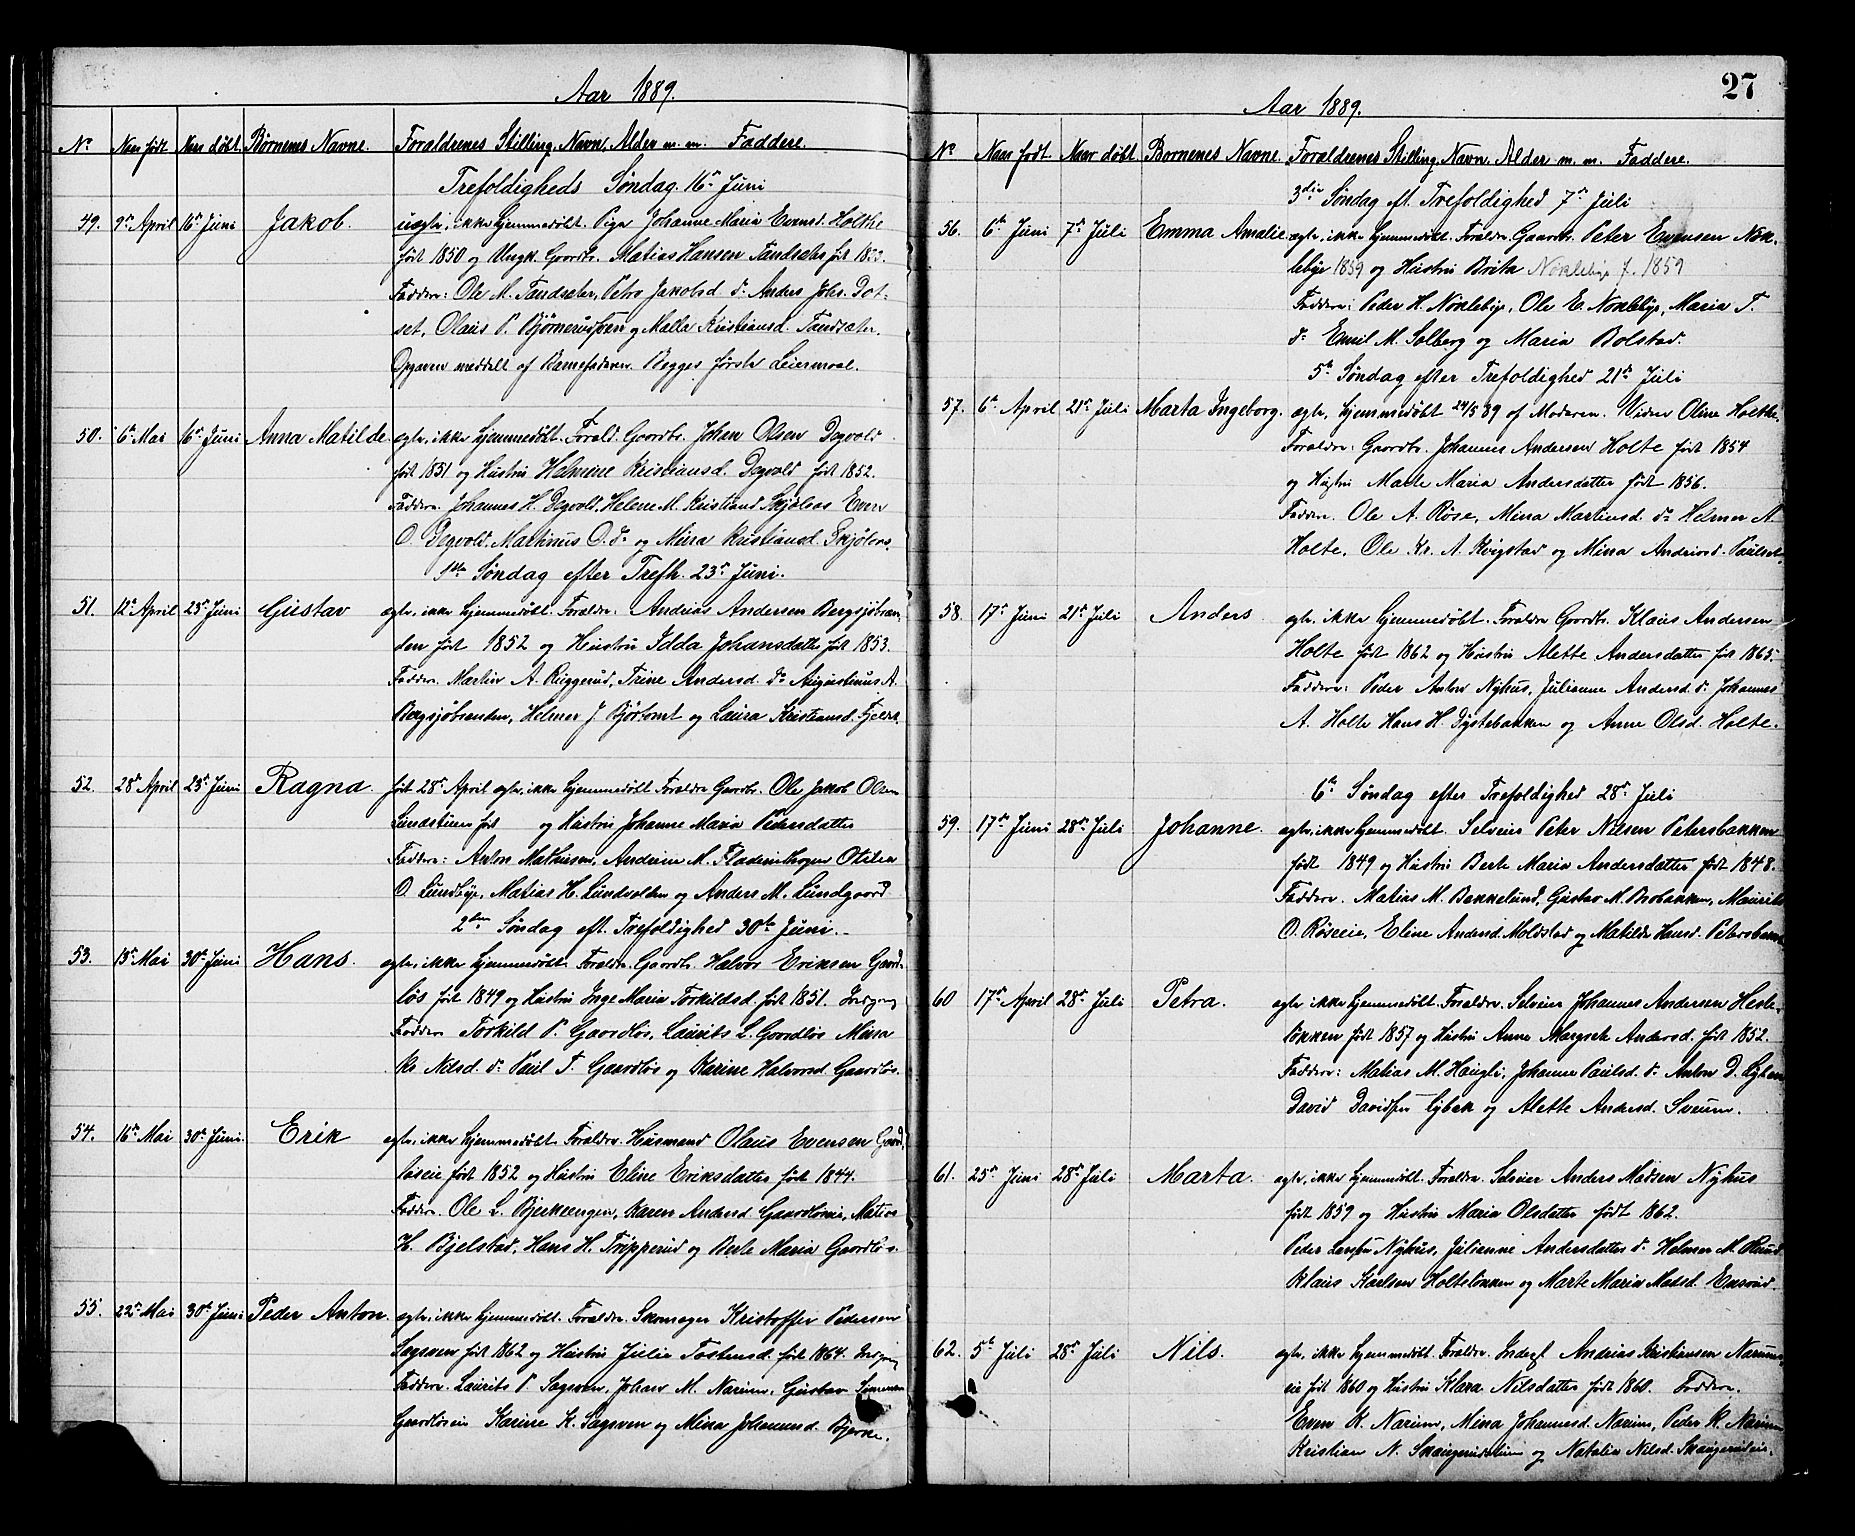 Aar 1889.
No Naar født Naar døbt Børnenes Navne. Forældrenes Stilling, Navn, Alder m. m. Faddere.
Trefoldigheds Søndag. 16de Juni
49. 9de April 16de Juni Jakob. uægte, ikke hjemmedøbt. Pige Johanne Maria Evensd. Holthe
født 1850 og Ungk. Gaardbr. Matias Hansen Tandsæter født
Faddere: Ole M. Tandsæter, Petra Jakobsd. do Anders Johs. Dot-
set, Olaus P. Bjørnerudsveen og Malla Kristiansd. Tandsæter.
Opgaven meddelt af Barnefaderen. Begges første Leiermaal.
50. 6te Mai 16de Juni Anna Matilde ægte, ikke hjemmedøbt. Foræld. Gaardbr. Johan Olsen Degvold
født 1851 og Hustru Helmine Kristiansd. Degvold født 1852.
Faddere. Johannes H. Degvold, Helene M. Kristiansd. Skjølaas Even
O. Degvold, Martinus O. do og Mina Kristiansd. Skjølaas.
1ste Søndag efter Trefh. 23de Juni.
51. 12te April 23de Juni Gustav ægte, ikke hjemmedøbt. Forældre: Andreas Andersen Bergsjøbran-
den født 1852 og Hustru Idda Johansdatter født 1853.
Faddere. Martin A. Ruggerud, Trine Andersd. do Augustinus A.
Bergsjøbranden, Helmer J. Bjørtomt og Laura Kristiansd.
52. 28de April 23de Juni Ragna. født 28de April ægte, ikke hjemmedøbt Forældre Gaardbr. Ole Jakob Olsen
Lundstuen født og Hustru Johanne Maria Pedersdatter
Faddere: Anton Mathiesen, Andrine M. Fladerudhagen Otilia
O. Lundbye, Matias H. Lundsolden og Anders M. Lundgaard
2den Søndag eft. Trefoldighed 30te Juni.
53. 13de Mai 30te Juni Hans. ægte, ikke hjemmedøbt. Forældre. Gaardbr. Halvor Eriksen Gaard-
løs født 1849 og Hustru Inge Maria Torkildsd. født 1851.
Faddere Torkild P. Gaardløs, Laurits L. Gaardløs Mina
Kr. Nilsd. do Paul T. Gaardløs og Karine Halvorsd. Gaardløs.
54. 16de Mai 30te Juni. Erik ægte, ikke hjemmedøbt. Forældre. Husmand Olaus Evensen Gaard-
løseie født 1852 og Hustru Eline Eriksdatter født 1844.
Faddere. Ole L. Bjerkeengen, Karen Andersd. Gaardløseie, Matias
H. Bjelstad, Hans H. Tripperud og Berte Maria Gaardløs.
55. 22de Mai 30te Juni Peder Anton. ægte, ikke hjemmedøbt. Forældre. Skomager Kristoffer Pedersen
Sagsveen født 1862 og Hustru Julie Tostensd. født 1864.
Faddere. Laurits P. Sagsveen, Johan M. Narum, Gustav Simensen
Gaardløseie Karine K. Sagsveen og Mina Johannesd. Bjerke.
27
Aar 1889.
No Naar født. Naar døbt Børnenes Navne Forældrenes Stilling, Navn, Alder m. m. Faddere.
3die Søndag eft. Trefoldighed 7de Juli
56. 6te Juni 7de Juli Emma Amalie ægte, ikke hjemmedøbt. Forældre. Gaardbr. Peter Evensen Nøk-
lebye 1859 og Hustru Brita Nøklebye f. 1859
Faddere: Peder H. Nøklebye, Ole E. Nøklebye, Maria T.
do Emil M. Solberg og Maria Bolstad.
5te Søndag efter Trefoldighed 21de Juli
57. 6te April 21de Juli Marta Ingeborg. ægte, hjemmedøbt 24/5 89 af Moderen. Vidner Oline Holthe.
Forældre: Gaardbr. Johannes Andersen Holte født 1854
og Hustru Marte Maria Andersdatter født 1856.
Faddere. Ole A. Røse, Mina Martinsd. do Helmer A.
Holte, Ole Kr. A. Kvigstad og Mina Andersd. Paulset.
58. 17de Juni 21de Juli Anders ægte, ikke hjemmedøbt. Forældre Gaardbr. Klaus Andersen
Holte født 1862 og Hustru Alette Andersdatter født 1865.
Faddere: Peder Anton Nyhus, Julianne Andersd. do Johannes
A. Holte Hans H. Dystebakken og Anne Olsd. Holte.
6te Søndag efter Trefoldighed 28de Juli
59. 17de Juni 28de Juli Johanne. ægte, ikke hjemmedøbt. Selveier Peter Nilsen Petersbakken
født 1849 og Hustru Berte Maria Andersdatter født 1848.
Faddere. Matias M. Bakkelund, Gustav M. Brobakken, Maurits
O. Røseeie, Eline Andersd. Moldstad og Matilde Hansd. Petersbakk
60 17de April 28de Juli Petra. ægte ikke hjemmedøbt. Forældre. Selveier Johannes Andersen Hesle-
løkken født 1857 og Hustru Anne Margrete Andersd. født 1852.
Faddere: Matias M. Haugli, Johanne Paulsd. do Anton D.
David Davidsen og Alette Andersd. Sveum.
61. 25de Juni 28de Juli Marta. ægte, ikke hjemmedøbt. Forældre. Selveier Anders Madsen Nyhus
født 1859 og Hustru Maria Olsdatter født 1862.
Peder Larsen Nyhus, Julianne Andersdatter do Helmer M. Rund
Klaus Karlsen Holteløkken og Marte Maria Madsd. Ensrud.
62. 5te Juli 28de Juli Nils. ægte, ikke hjemmedøbt. Forældre. Inderst Andreas Kristiansen Narums-
eie født 1860 og Hustru Klara Nilsdatter født 1860. Faddere.
Even K. Narum, Mina Johannesd. Narum, Peder K. Narum
Kristian N. Skaugerudstuen og Natalia Nilsd. Skaugerudeie.